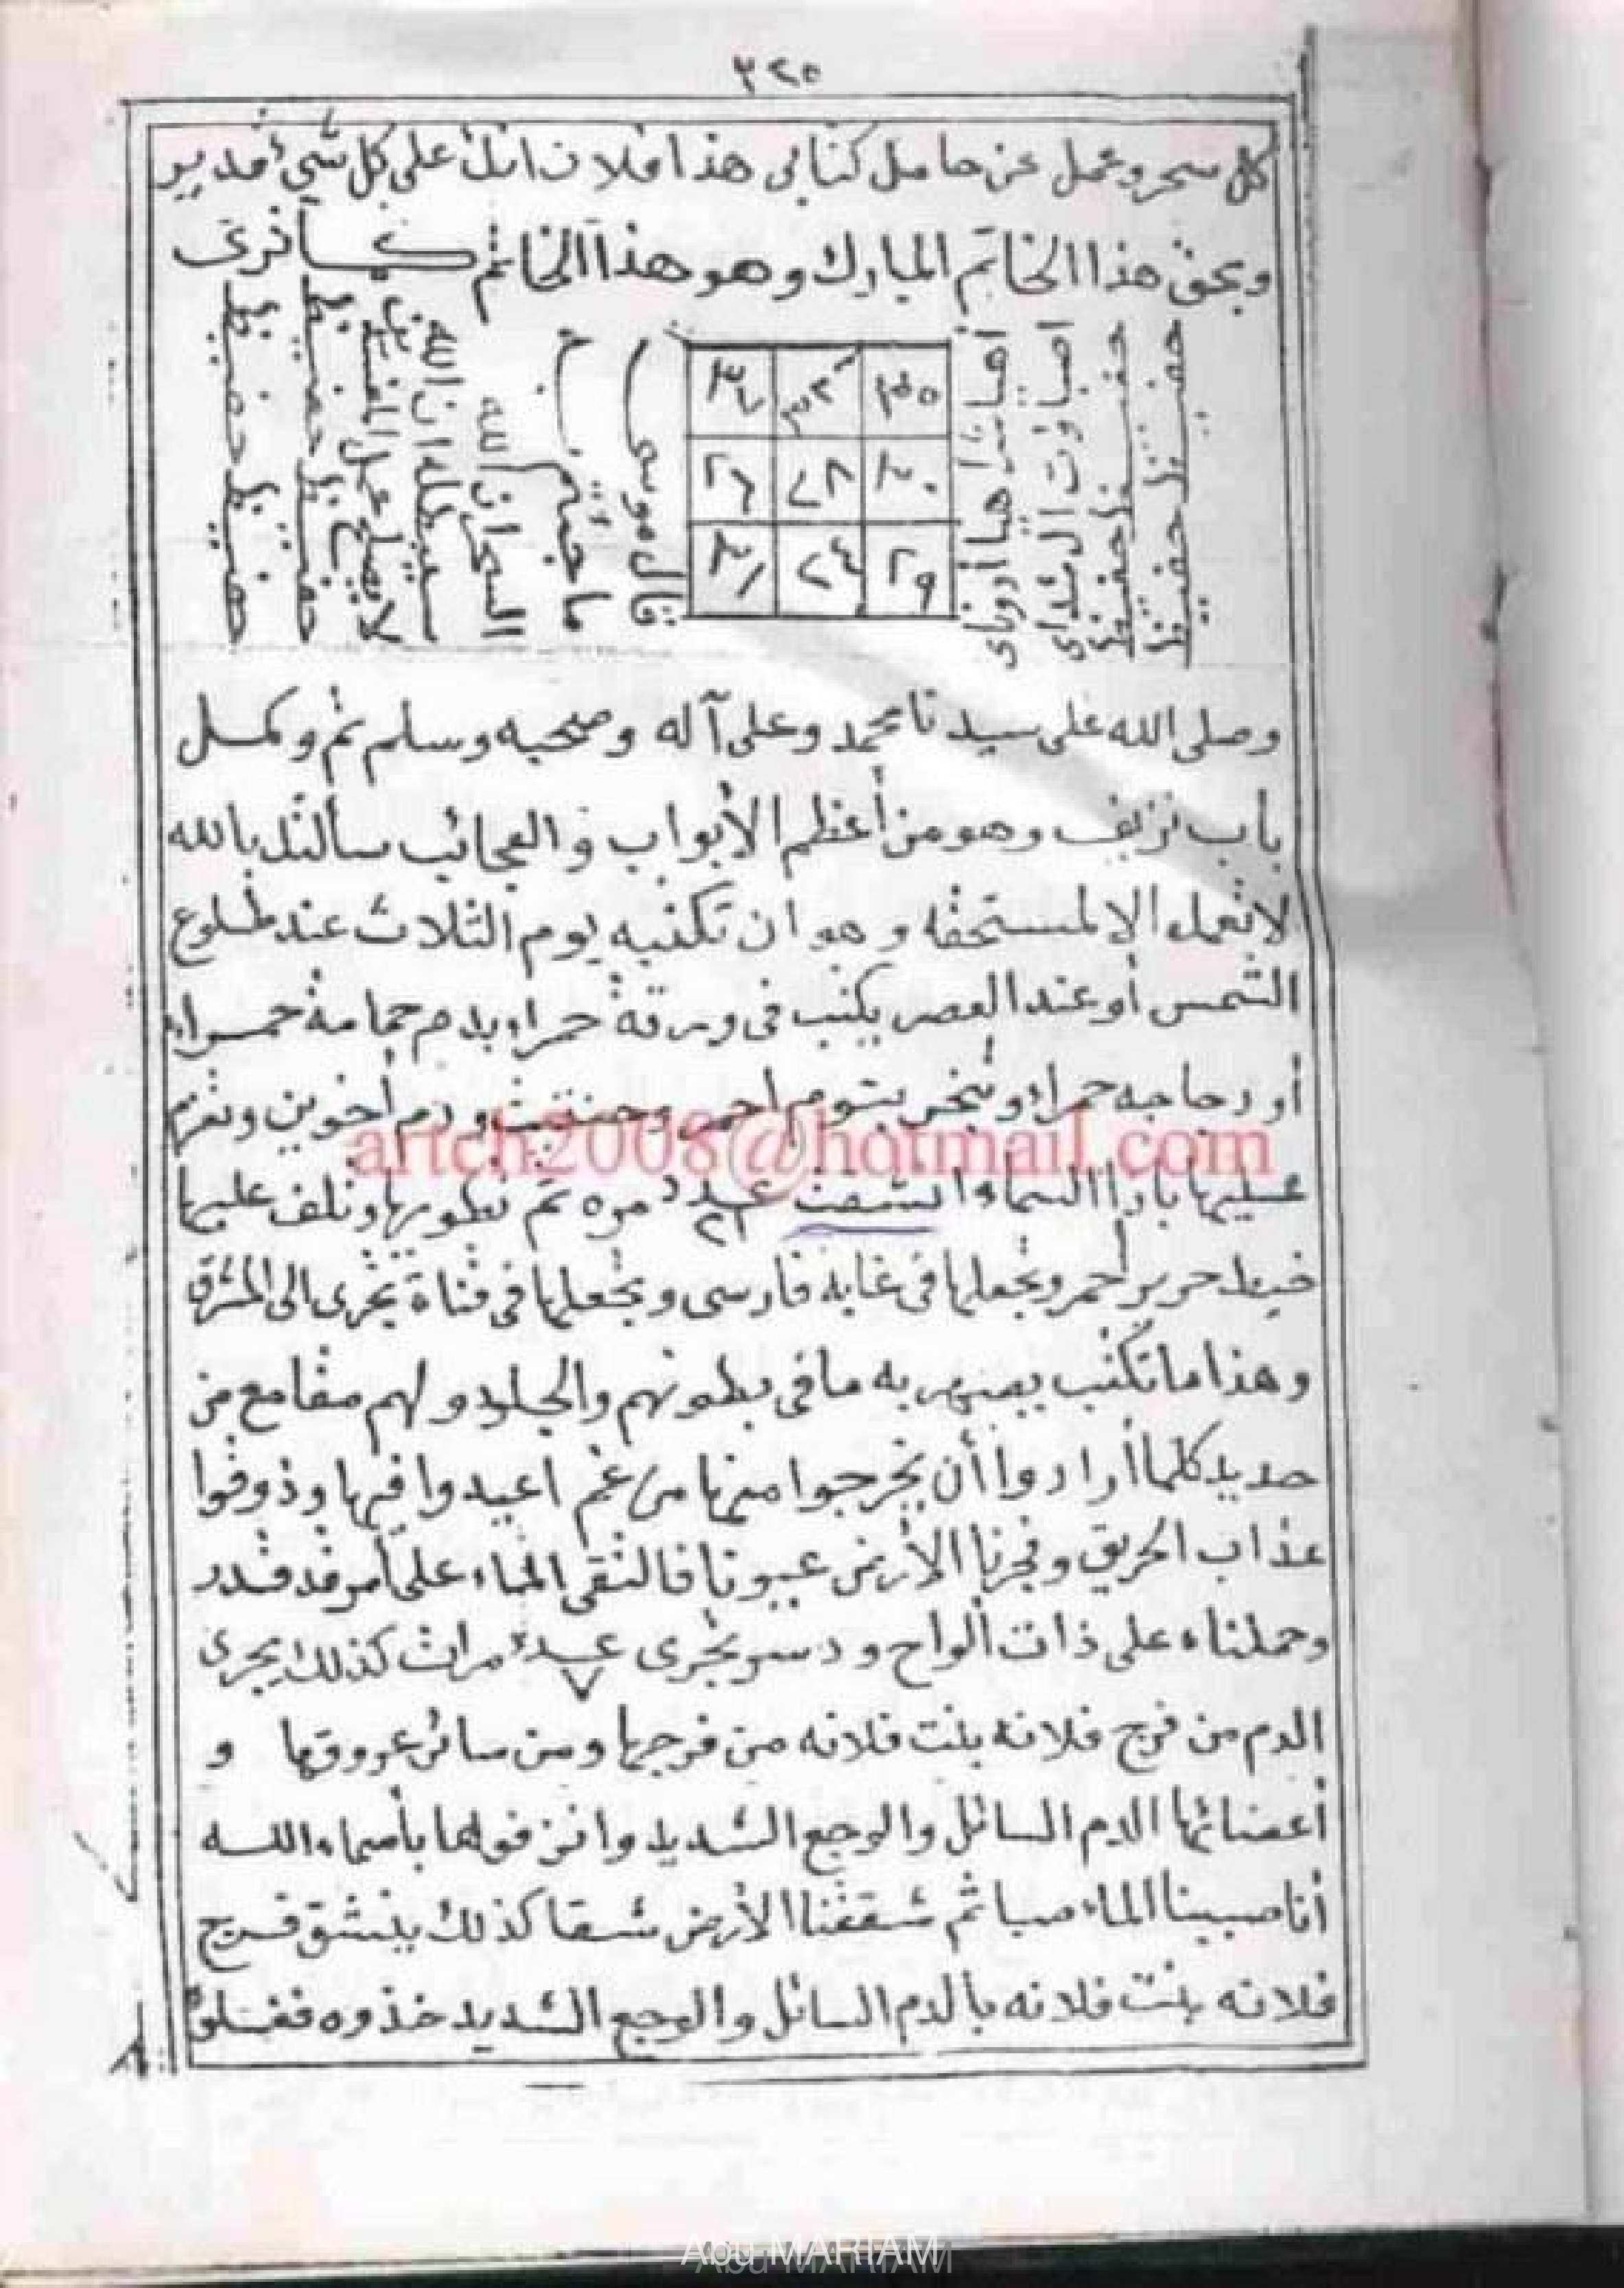 ٣٢٥
كل سحر وعمل عن حامل كتابي هذا فلان انك على كل شيء قدير
وبحق هذا الخاتم المبارك وهو هذا الخاتم كما ترى
حفيظ حفيظ
حفيظ حفيظ
اصباوت ال شداي
اهيا شراهيا أدوناي
٣٥
٣٠
٢٩
٢٨
٢٣
٢٦
٣١
قال موسى
ما جئتم به
السحر ان الله
سيبطله ان الله
لا يصلح عمل المفسدين
حفيظ حفيظ حفيظ
حفيظ حفيظ حفيظ
وصلى الله على سيدنا محمد وعلى آله وصحبه وسلم تم وكمل
باب نزيف وهو من أعظم الأبواب والعجائب سألتك بالله
لا تعمله الا لمستحقه وهو ان تكتبه يوم الثلاث عند طلوع
الشمس أو عند العصر يكتب في ورقة حمراء بدم حمامة حمراء
أو دجاجه حمراء وتبخر بثوم احمر وحلتيت ودم أخوين وتعزم
عليها باذا السماء انشقت عدد ٢١ مره ثم تطويها وتلف عليها
خيط حرير أحمر وتجعلها في غابه فارسى وتجعلها في قناة تجرى الى المشرق
وهذا ما تكتب يصهر به ما في بطونهم والجلود ولهم مقامع من
حديد كلما أرادوا أن يخرجوا منها من غم اعيدوا فيها وذوقوا
عذاب الحريق وفجرنا الأرض عيونا فالتقى الماء على أمر قد قدر
وحملناه على ذات ألواح ودسر تجرى عدد ٧ مرات كذلك يجرى
الدم من فرج فلانه بنت فلانه من فرجها ومن سائر عروقها و
أعضائها الدم السائل والوجع الشديد وانزفوها بأسماء الله
أنا صببنا الماء صبا ثم شققنا الأرض شقا كذلك ينشق فرج
فلانه بنت فلانه بالدم السائل والوجع الشديد خذوه فغلوه
artch2008@hotmail.com
Abu MARIAM